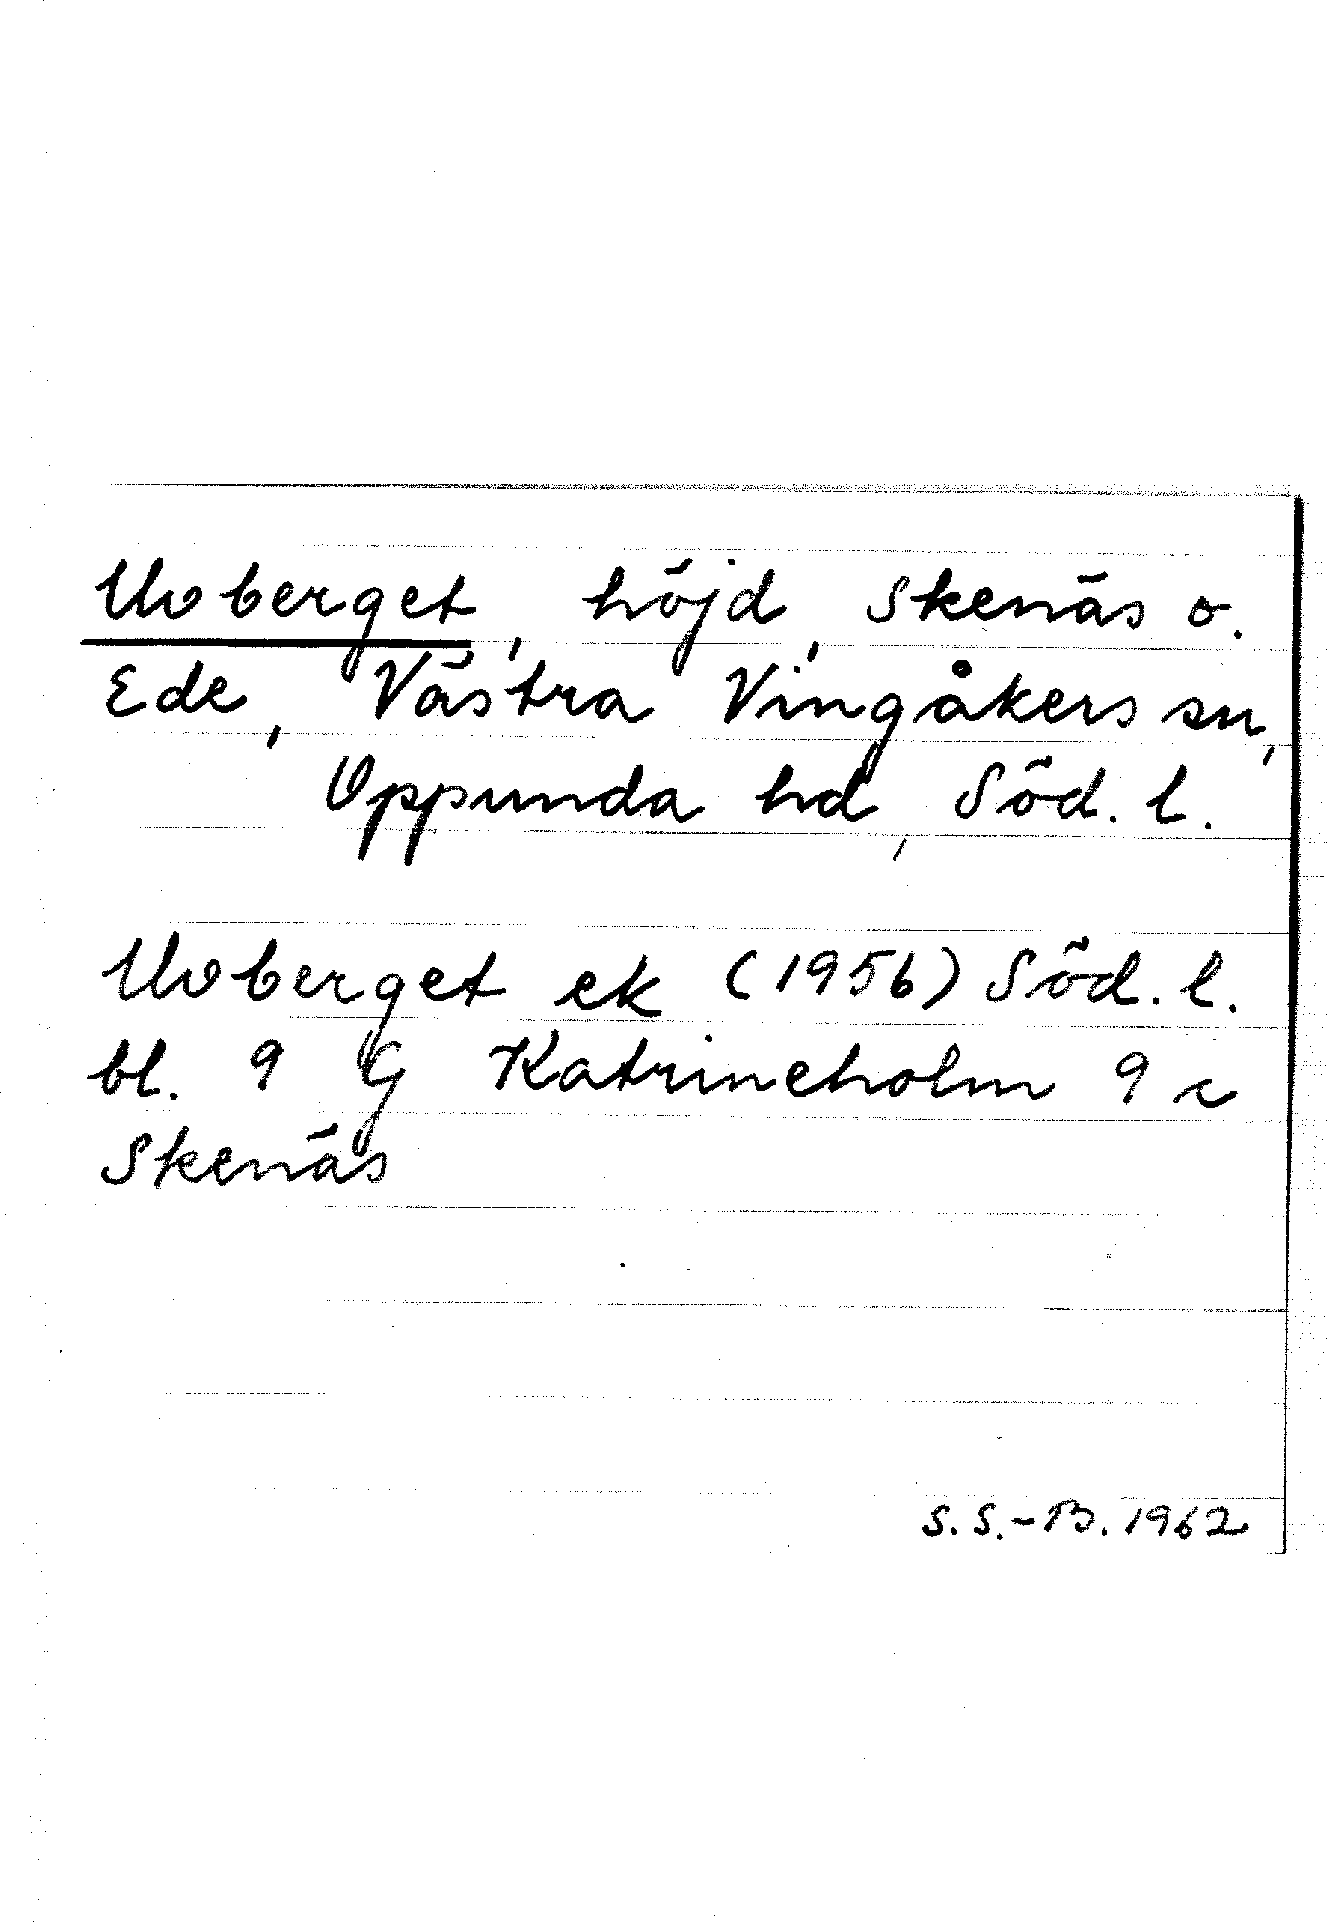 Uvberget, höjd, Skenäs o.
Ede, Västra Vingåkers sn,
Oppunda hd, Söd. l.
Uvberget ek (1956) Söd. l.
bl. 9 G Katrineholm 9 c
Skenäs
S. S.-B. 1962